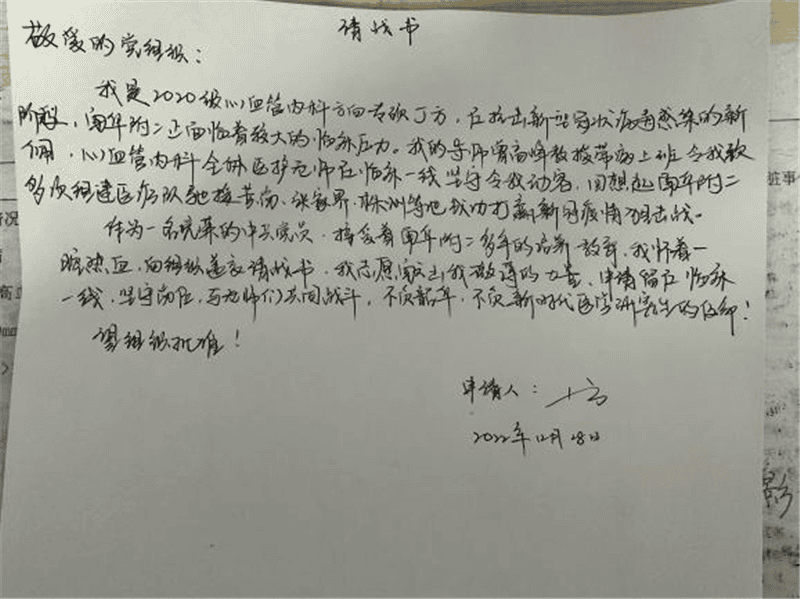 请战书
敬爱的党组织：
我是2020级心血管内科方向专硕丁方，在抗击新型冠状病毒感染的新
阶段，南华附二正面临着较大的临床压力。我的导师曾高峰教授带病上班令我钦
佩，心血管内科全体医护老师在临床一线坚守令我动容，回想起南华附二
多次组建医疗队驰援黄冈、张家界、株洲等地成功打赢新冠疫情狙击战。
作为一名光荣的中共党员，接受着南华附二多年的培养教育，我怀着一
腔热血，向组织递交请战书，我志愿献出我微薄的力量、申请留在临床
一线，坚守岗位，与老师们共同战斗，不负韶华，不负新时代医学研究生的使命！
望组织批准！
申请人：丁方
2022年12月28日
影
情况